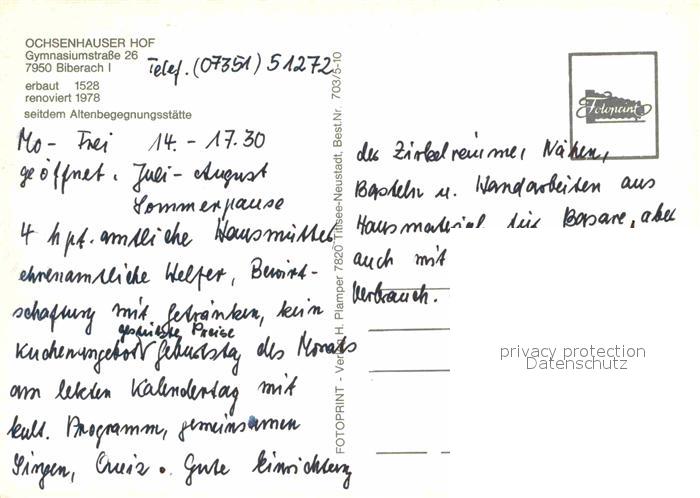 OCHSENHAUSER HOF
Gymnasiumstraße 26
7950 Biberach I
Telef. (07351) 51272
erbaut 1528
renoviert 1978
seitdem Altenbegegnungsstätte
Mo- Frei 14.-17.30
geöffnet. Juli-August
Sommerpause
4 hpt.amtliche Hausmütter
ehrenamtliche Helfer, Bewirt-
schaftung mit Getränken, kein
gestützte Preise
Kuchenangebot Geburtstag des Monats
am letzten Kalendertag mit
kult. Programm, gemeinsamen
Singen, Quiz. Gute Einrichtung
FOTOPRINT - Verlag H. Plamper 7820 Titisee-Neustadt, Best.Nr. 703/5-10
Fotoprint
der Zirkelräume, Nähen,
Basteln u. Handarbeiten aus
Hausmaterial für Basare, aber
auch mit
Verbrauch.
privacy protection
Datenschutz